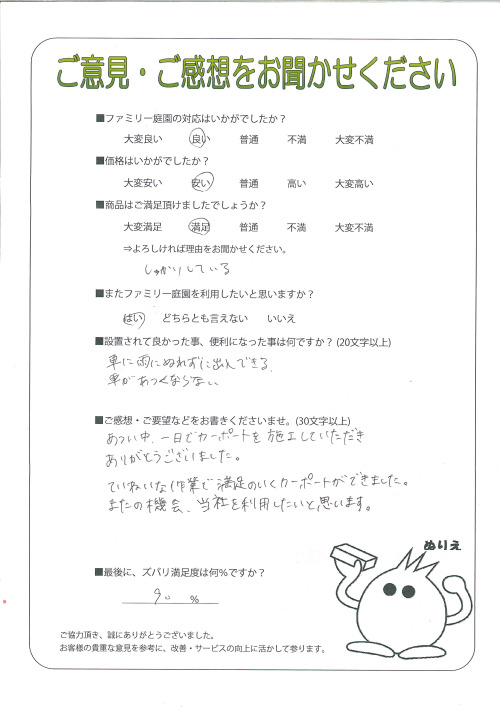 ご意見・ご感想をお聞かせください
■ファミリー庭園の対応はいかがでしたか？
大変良い 良い 普通 不満 大変不満
■価格はいかがでしたか？
大変安い 安い 普通 高い 大変高い
■商品はご満足頂けましたでしょうか？
大変満足 満足 普通 不満 大変不満
⇒よろしければ理由をお聞かせください。
しっかりしている
■またファミリー庭園を利用したいと思いますか？
はい どちらとも言えない いいえ
■設置されて良かった事、便利になった事は何ですか？(20文字以上)
車に雨にぬれずに出入できる。
車があつくならない。
■ご感想・ご要望などをお書きくださいませ。(30文字以上)
あつい中、一日でカーポートを施工していただき
ありがとうございました。
ていねいな作業で満足のいくカーポートができました。
またの機会、当社を利用したいと思います。
ぬりえ
■最後に、ズバリ満足度は何％ですか？
90 ％
ご協力頂き、誠にありがとうございました。
お客様の貴重な意見を参考に、改善・サービスの向上に活かして参ります。